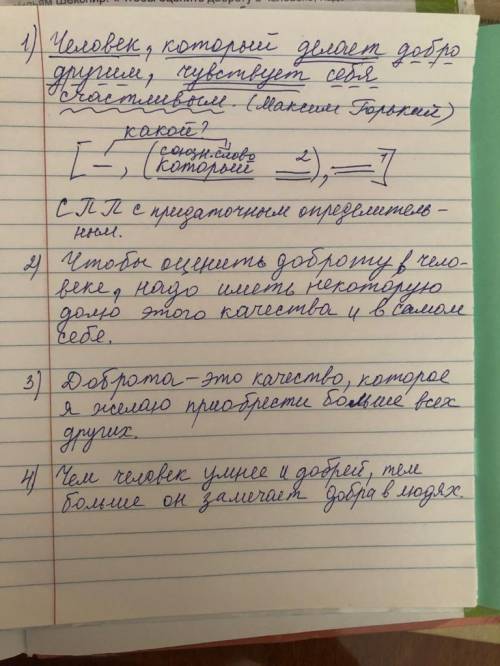 льям Шекспир.
1) Человек, который делает добро
другим, чувствует себя
счастливым. (Максим Горький)
какой?
[ —, (союзн. слово
который 2), 1]
СПП с придаточным определитель-
ным.
2) Чтобы оценить доброту в чело-
веке, надо иметь некоторую
долю этого качества и в самом
себе.
3) Доброта – это качество, которое
я желаю приобрести больше всех
других.
4) Чем человек умнее и добрей, тем
больше он замечает добра в людях.